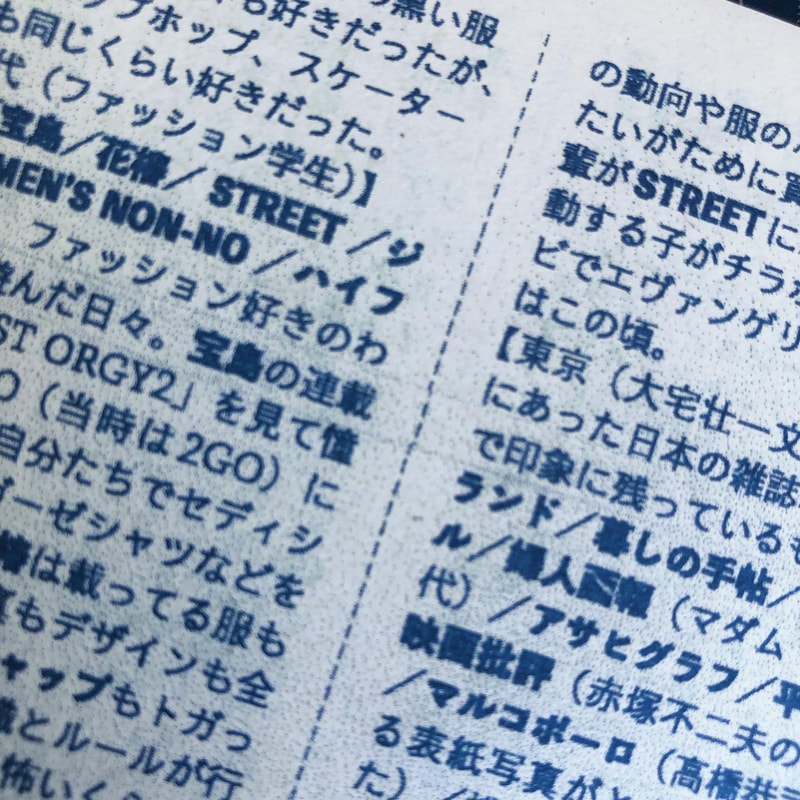 の黒い服
も好きだったが、
ップホップ、スケーター
も同じくらい好きだった。
代（ファッション学生)】
宝島／花椿／STREET／ジ
MEN'S NON-NO／ハイフ
ファッション好きのわ
遊んだ日々。宝島の連載
ST ORGY2」を見て憧
O（当時は2GO）に
自分たちでセディシ
ガーゼシャツなどを
椿は載ってる服も
真もデザインも全
ャップもトガっ
識とルールが行
怖いくら
の動向や服の
たいがために買
輩がSTREETに
動する子がチラ
ビでエヴァンゲリ
はこの頃。
【東京（大宅壮一文
にあった日本の雑誌
で印象に残っているも
ランド／暮しの手帖／
ル／婦人画報（マダム
代）／アサヒグラフ／平
映画批評（赤塚不二夫の
／マルコポーロ（高橋恭
る表紙写真がと
た）／